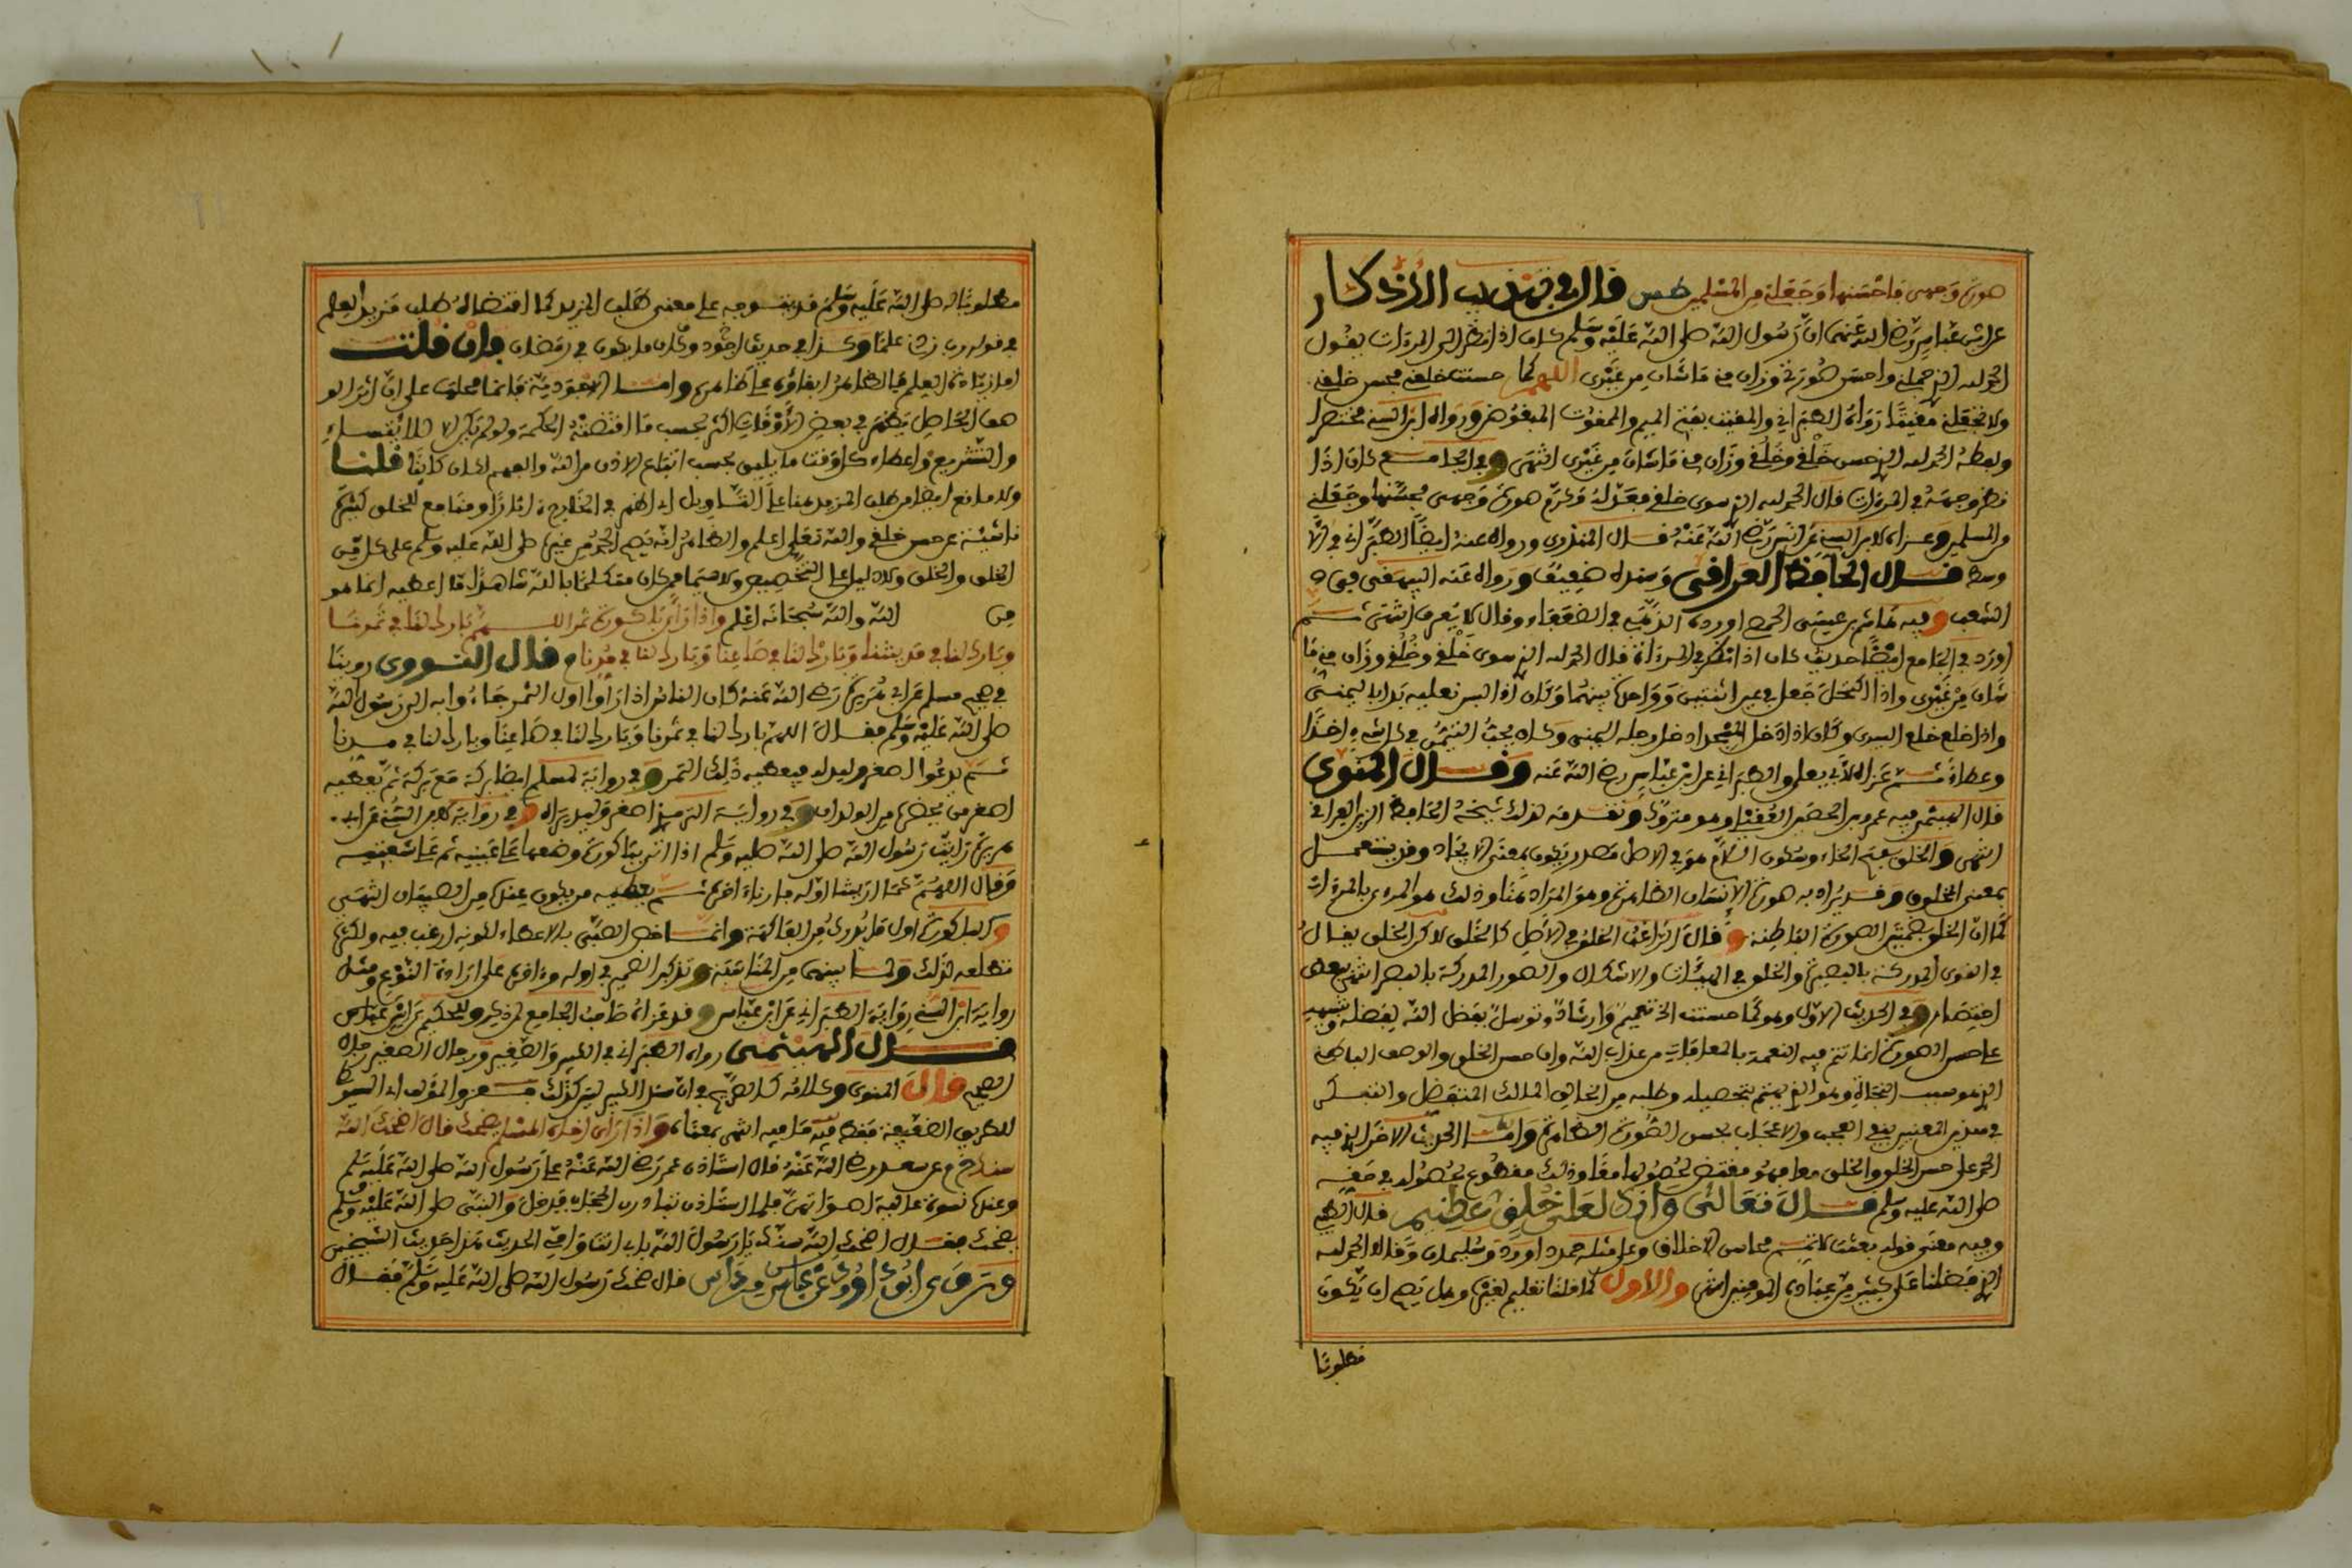 صورة وجهي فاحسنها وجعلني من المسلمين طس قال في تهذيب الاذكار
عن ابن عباس رضي الله عنهما ان رسول الله صلى الله عليه وسلم كان اذا نظر الى المرءات يقول
الحمد لله الذي جملني واحسن صورتي وزان مني ما شان من غيري اللهم كما حسنت خلقي فحسن خلقي
ولا تجعلني مقيتا رواه الطبراني والمقيت بفتح الميم والممقوت المبغوض ورواه ابن السني مختصرا
ولفظه الحمد لله الذي حسن خلقي وخلقي وزان مني ما شان من غيري انتهى وفي الجامع كان اذا
نظر وجهه في المرءات قال الحمد لله الذي سوى خلقي فعدله وكرم صورة وجهي فحسنها وجعلني
من المسلمين وعزاه لابن السني عن انس رضي الله عنه قال المنذري ورواه عنه ايضا الطبراني في الا
وسط قال الحافظ العراقي وسنده ضعيف ورواه عنه البيهقي في
الشعب وفيه هاشم بن عيسى الحمصي اورده الذهبي في الضعفاء وقال لا يعرف انتهى ثم
اورد في الجامع ايضا حديث كان اذا نظر في المرءاة قال الحمد لله الذي سوى خلقي وخلقي وزان مني ما
شان من غيري واذا اكتحل جعل في عين اثنتين وواحدة بينهما وكان اذا لبس نعليه بدا باليمنى
واذا خلع خلع اليسرى وكان اذا دخل المسجد ادخل رجله اليمنى وكان يحب التيمن في كل شيء اخذا
وعطاء ثم عزاه لابي يعلى والطبراني عن ابن عباس رضي الله عنه وقال المنوي
قال الهيثمي فيه عمرو بن الحصين العقيلي وهو متروك وتقدمه لذلك شيخه الحافظ الزين العراقي
انتهى والخلق بفتح الخاء وسكون اللام هو في الاصل مصدر يكون بمعنى الايجاد وقد يستعمل
بمعنى المخلوق وقد يراد به صورة الانسان الظاهرة وهو المراد هنا وذلك هو المرءي بالمرءات
كما ان الخلق بضمتين الصورة الباطنة وقال الراغب الخلق في الاصل كالخلق لاكن الخلق يقال
في القوى المدركة بالبصيرة والخلق في الهيئات والاشكال والصور المدركة بالبصر انتهى ببعض
اختصار وفي الحديث الاول وهو كما حسنت الخ تعميم وارشاد وتوسل بفضل الله بفضله وتنبيه
على حسن الصورة انما تتم فيه النعمة بالمعافات من عذاب الله وان حسن الخلق والوصف الباطن
الذي هو سبب النجاة وهو الذي يهتم بتحصيله وطلبه من الخالق المالك المتفضل والتفكر
في هذين المعنيين ينفي العجب والاعجاب بحسن الصورة الظاهرة واما الحديث الاخر الذي فيه
الحمد على حسن الخلق والخلق معا فهو مقتض لحصولهما معا وذلك مقطوع بحصوله في حقه
صلى الله عليه وسلم قال تعالى وانك لعلى خلق عظيم قال الطيبي
وفيه معنى قوله بعثت لاتمم محاسن الاخلاق وعلى مثله حمد داوود وسليمان وقالا الحمد لله
الذي فضلنا على كثير من عباده المومنين انتهى والاول كما قلنا تعليم لغيره وهل يصح ان يكون
مطلوبا
مطلوبا له صلى الله عليه وسلم قد يتوجه على معنى طلب المزيد كما اقتضاه طلب مزيد العلم
في قوله رب زدني علما وكذا في حديث اجود وكان ما يكون في رمضان فان قلت
اما زيادة العلم فالظاهر ابقاؤه على ظاهره واما الاجودية فانما محلها على ان اثر الو
صف الحاصل يظهر في بعض الاوقات اكثر بحسب ما اقتضته الحكمة ولو لم يكن الا للائتساء
والتشريع واعطاء كل وقت ما يليق بحسب اتباع الاذن من الله والفهم لكان كافيا قلنا
ولا مانع ايضا من طلب المزيد هنا على التاويل اي اظهر في الخارج ءاثارا ومنافع للخلق كثيرة
ناشئة عن حسن خلقي والله تعالى اعلم والظاهر انه يصح الحمد من غيره صلى الله عليه وسلم على كل من
الخلق والخلق ولا دليل على التخصيص ولا سيما ممن كان متكلما بالله شاهدا ما اعطيه انما هو
من الله والله سبحانه اعلم واذا راى باكورة تمر اللهم بارك لنا في تمرنا
وبارك لنا في مدينتنا وبارك لنا في صاعنا وبارك لنا في مدنا م قال النووي روينا
في صحيح مسلم عن ابي هريرة رضي الله عنه كان الناس اذا راوا اول التمر جاءوا به الى رسول الله
صلى الله عليه وسلم فقال اللهم بارك لنا في تمرنا وبارك لنا في صاعنا وبارك لنا في مدنا
ثم يدعوا اصغر وليد له فيعطيه ذلك التمر وفي رواية لمسلم ايضا بركة مع بركة ثم يعطيه
اصغر من يحضره من الولدان وفي رواية الترمذي اصغر وليد يراه وفي رواية لابن السني عن ابي
هريرة رايت رسول الله صلى الله عليه وسلم اذا اتي بباكورة وضعها على عينيه ثم على شفتيه
وقال اللهم كما اريتنا اوله فارنا ءاخره ثم يعطيه من يكون عنده من الصبيان انتهى
والباكورة اول ما يدرك من الفاكهة وانما خص الصبي بالاعطاء لكونه ارغب فيه ولكثرة
تطلعه لذلك ولما بينهما من المناسبة وتذكير الضمير في اوله وءاخره على ارادة النوع ومثل
رواية ابن السني رواية الطبراني عن ابن عباس وقد عزاه صاحب الجامع لمن ذكر وللحكيم عن ابن عباس
قال الهيثمي رواه الطبراني في الكبير والصغير ورجال الصغير رجال
الصحيح قال المنوي وكلامه كالصريح في ان سند الكبير ليس كذلك فعزو المؤلف اي السيوطي
للطريق الضعيفة فقط فيه ما فيه انتهى بمعناه واذا راى اخاه المسلم يضحك قال اضحك الله
سنك خ م عن سعد رضي الله عنه قال استاذن عمر رضي الله عنه على رسول الله صلى الله عليه وسلم
وعنده نسوة عالية اصواتهن فلما استاذن تبادرن الحجاب فدخل والنبي صلى الله عليه وسلم
يضحك فقال اضحك الله سنك يا رسول الله بابي انت وامي الحديث هذا حديث الشيخين
وروى ابو داوود عن عباس مرداس قال ضحك رسول الله صلى الله عليه وسلم فقال